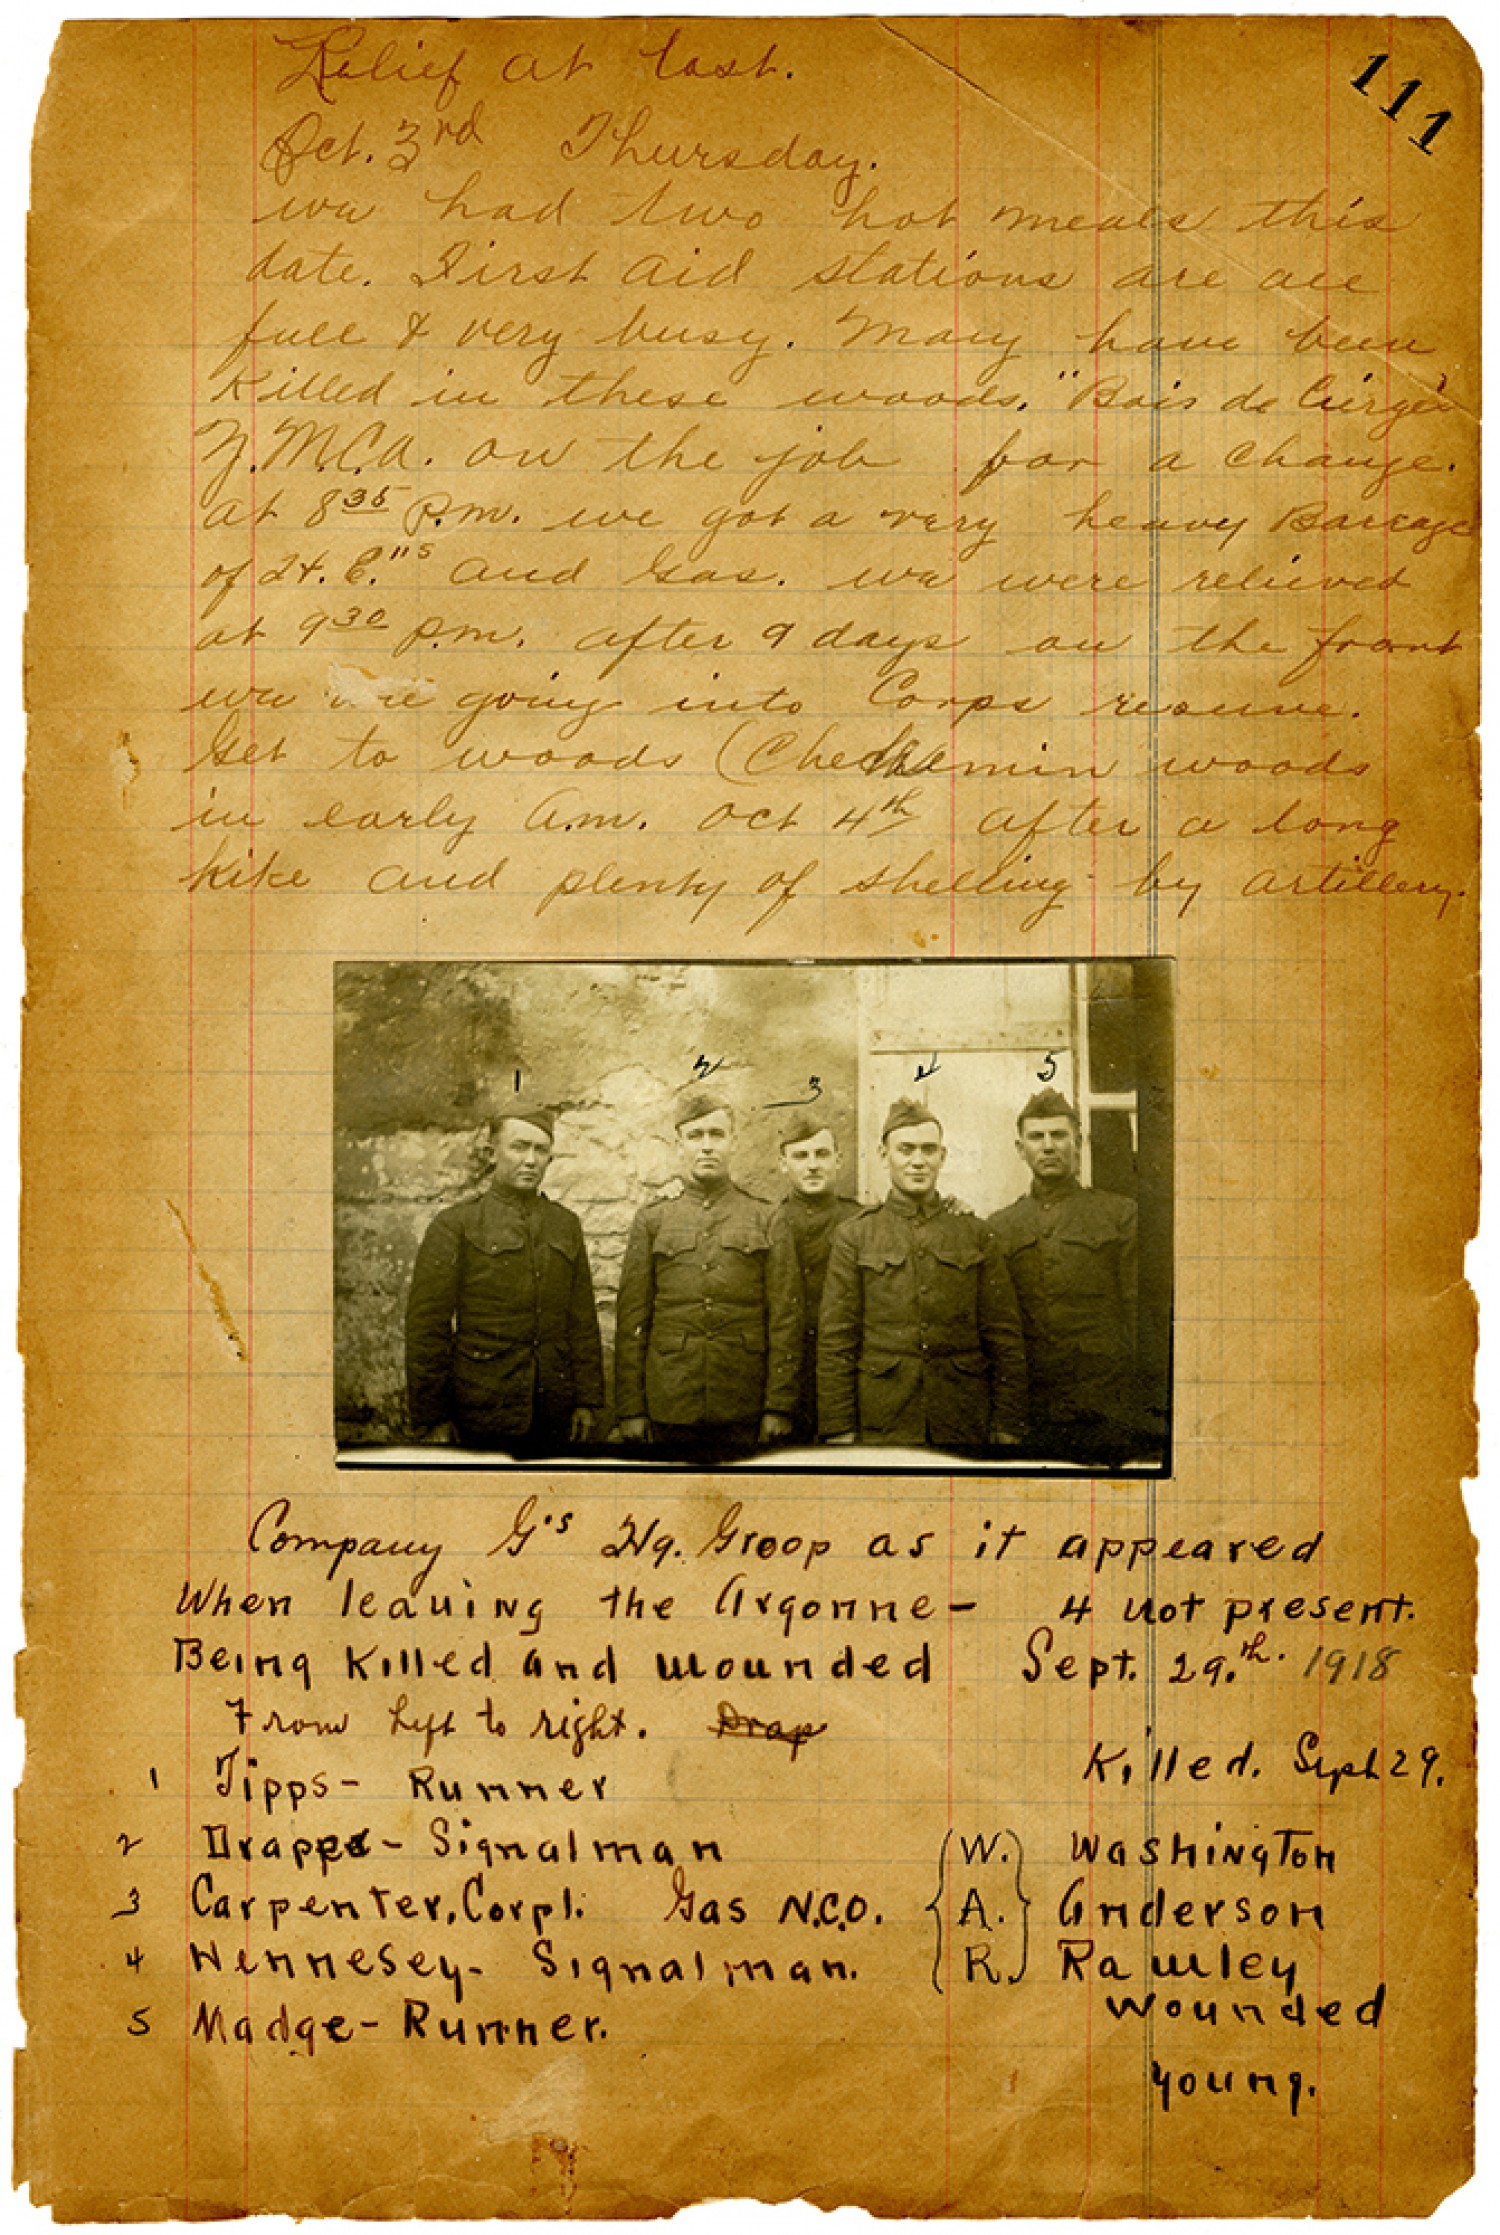 111
Relief at last.
Oct. 3rd Thursday.
we had two hot meals this
date. First aid stations are all
full & very busy. Many have been
killed in these woods. "Bois de Cierges"
Y.M.C.A. on the job for a change.
at 8 35 P.m. we got a very heavy Barrage
of H. E."s and Gas. we were relieved
at 9 30 p.m. after 9 days on the front
we are going into Corps reserve.
Get to woods (Chehemin woods
in early a.m. Oct 4th after a long
hike and plenty of shelling by artillery.
1 2 3 4 5
Company G's Hq. Groop as it appeared
When leaving the Argonne - 4 not present.
Being killed and wounded Sept. 29.th. 1918
From left to right. Drap
Killed. Sept 29.
1 Tipps - Runner
2 Drapps - Signalman (W.) Washington
3 Carpenter, Corpl. Gas N.C.O. {A.} Anderson
4 Hennesey - Signalman. (R.) Rawley
wounded
5 Madge - Runner.
Young.